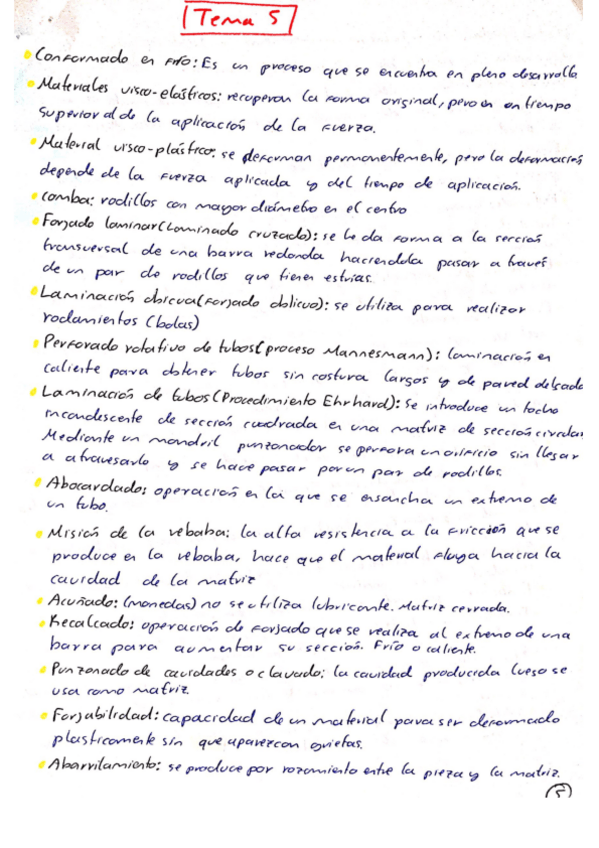 Tema 5
Conformado en frío: Es un proceso que se encuentra en pleno desarrollo
Materiales visco-elásticos: recuperan la forma original, pero en un tiempo
superior al de la aplicación de la fuerza.
Material visco-plástico: se deforman permanentemente, pero la deformación
depende de la fuerza aplicada y del tiempo de aplicación.
comba: rodillos con mayor diámetro en el centro
Forjado laminar (Laminado cruzado): se le da forma a la sección
transversal de una barra redonda haciendola pasar a través
de un par de rodillos que tienen estrías.
Laminación obicua (forjado oblicuo): se utiliza para realizar
rodamientos (bolas)
Perforado rotativo de tubos (proceso Mannesmann): laminación en
caliente para obtener tubos sin costura largos y de pared delgada
Laminación de tubos (Procedimiento Ehrhard): Se introduce un tocho
incandescente de sección cuadrada en una matriz de sección circular
Mediante un mandril punzonador se perfora un orificio sin llegar
a atravesarlo y se hace pasar por un par de rodillos.
Abocardado: operación en la que se ensancha un extremo de
un tubo.
Misión de la rebaba: la alta resistencia a la fricción que se
produce en la rebaba, hace que el material fluya hacia la
cavidad de la matriz
Acuñado: (monedas) no se utiliza lubricante. Matriz cerrada.
Recalcado: operación de forjado que se realiza al extremo de una
barra para aumentar su sección. Frío o caliente.
Punzonado de cavidades o clavado: la cavidad producida luego se
usa como matriz.
Forjabilidad: capacidad de un material para ser deformado
plasticamente sin que aparezcan grietas.
Abarrilamiento: se produce por rozamiento entre la pieza y la matriz.
5